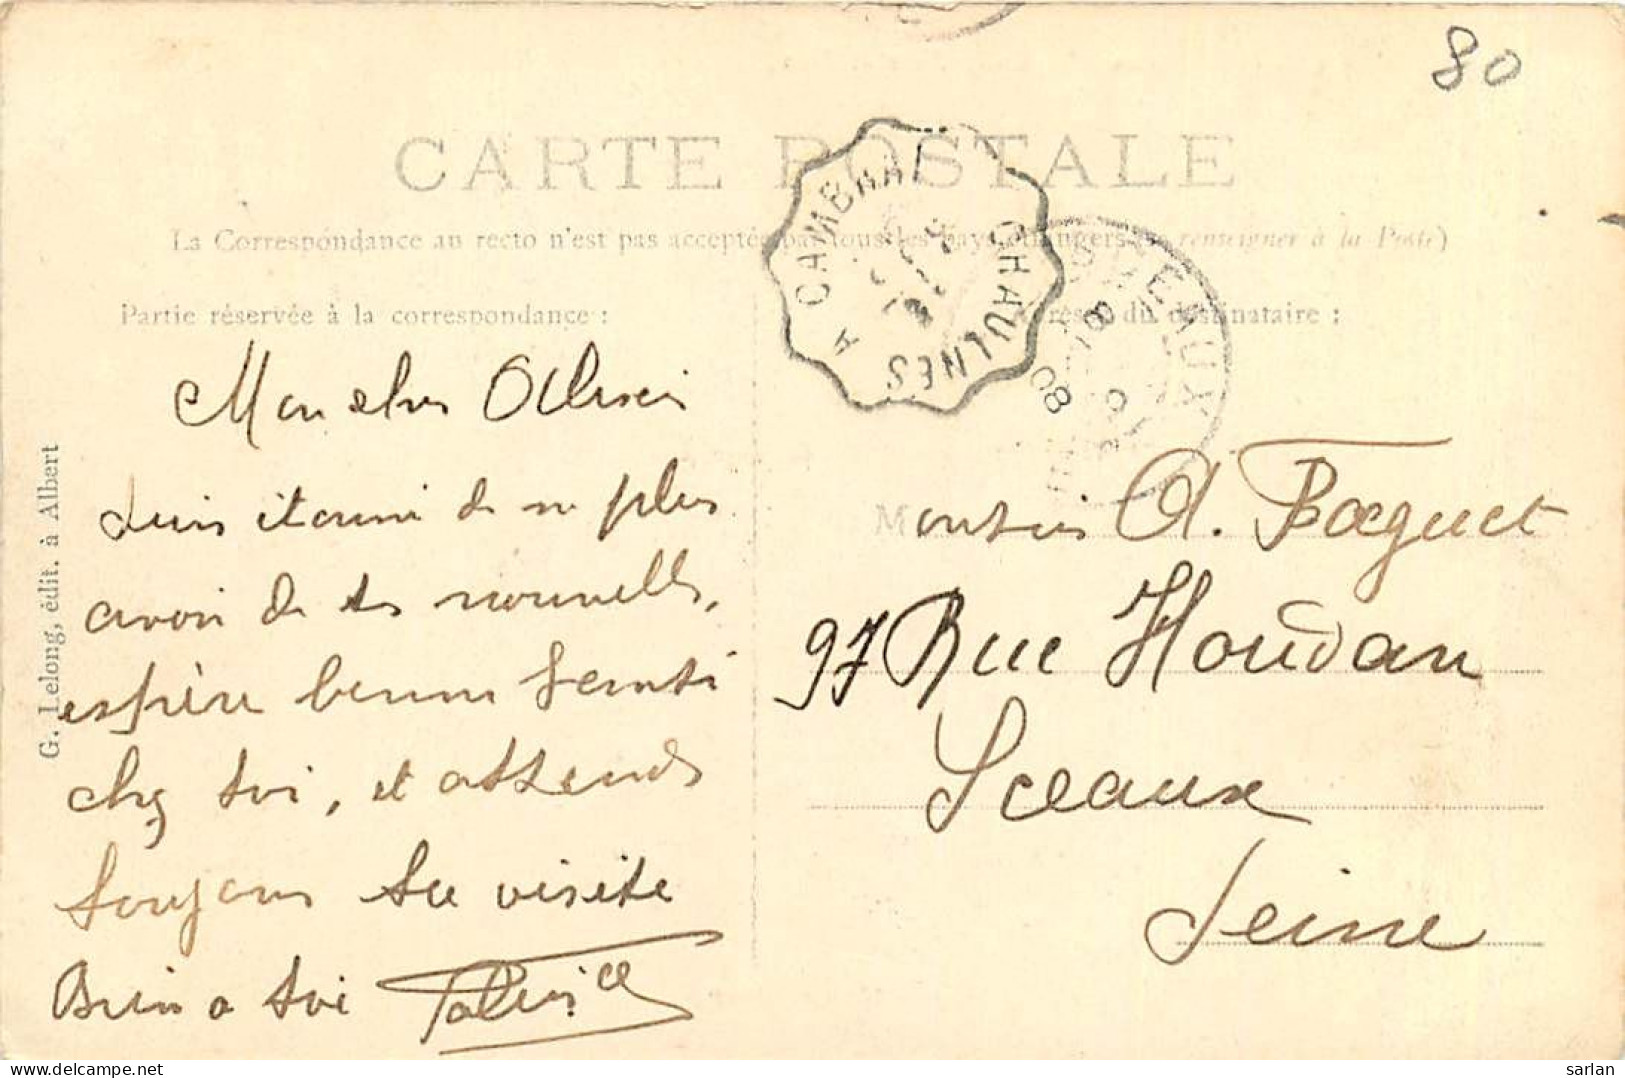 80
CARTE POSTALE
La Correspondance au recto n'est pas acceptée par tous les pays étrangers (se renseigner à la Poste)
CHAULNES A CAMBRAI
SCEAUX
8
08
Partie réservée à la correspondance :
Adresse du destinataire :
Mon cher
Suis étonné de ne plus
avoir de tes nouvelles,
espère bonne santé
chez toi, et attends
toujours ta visite
Bien a toi
Monsieur A. Faguet
97 Rue Houdan
Sceaux
Seine
G. Lelong, édit. à Albert
sarlan